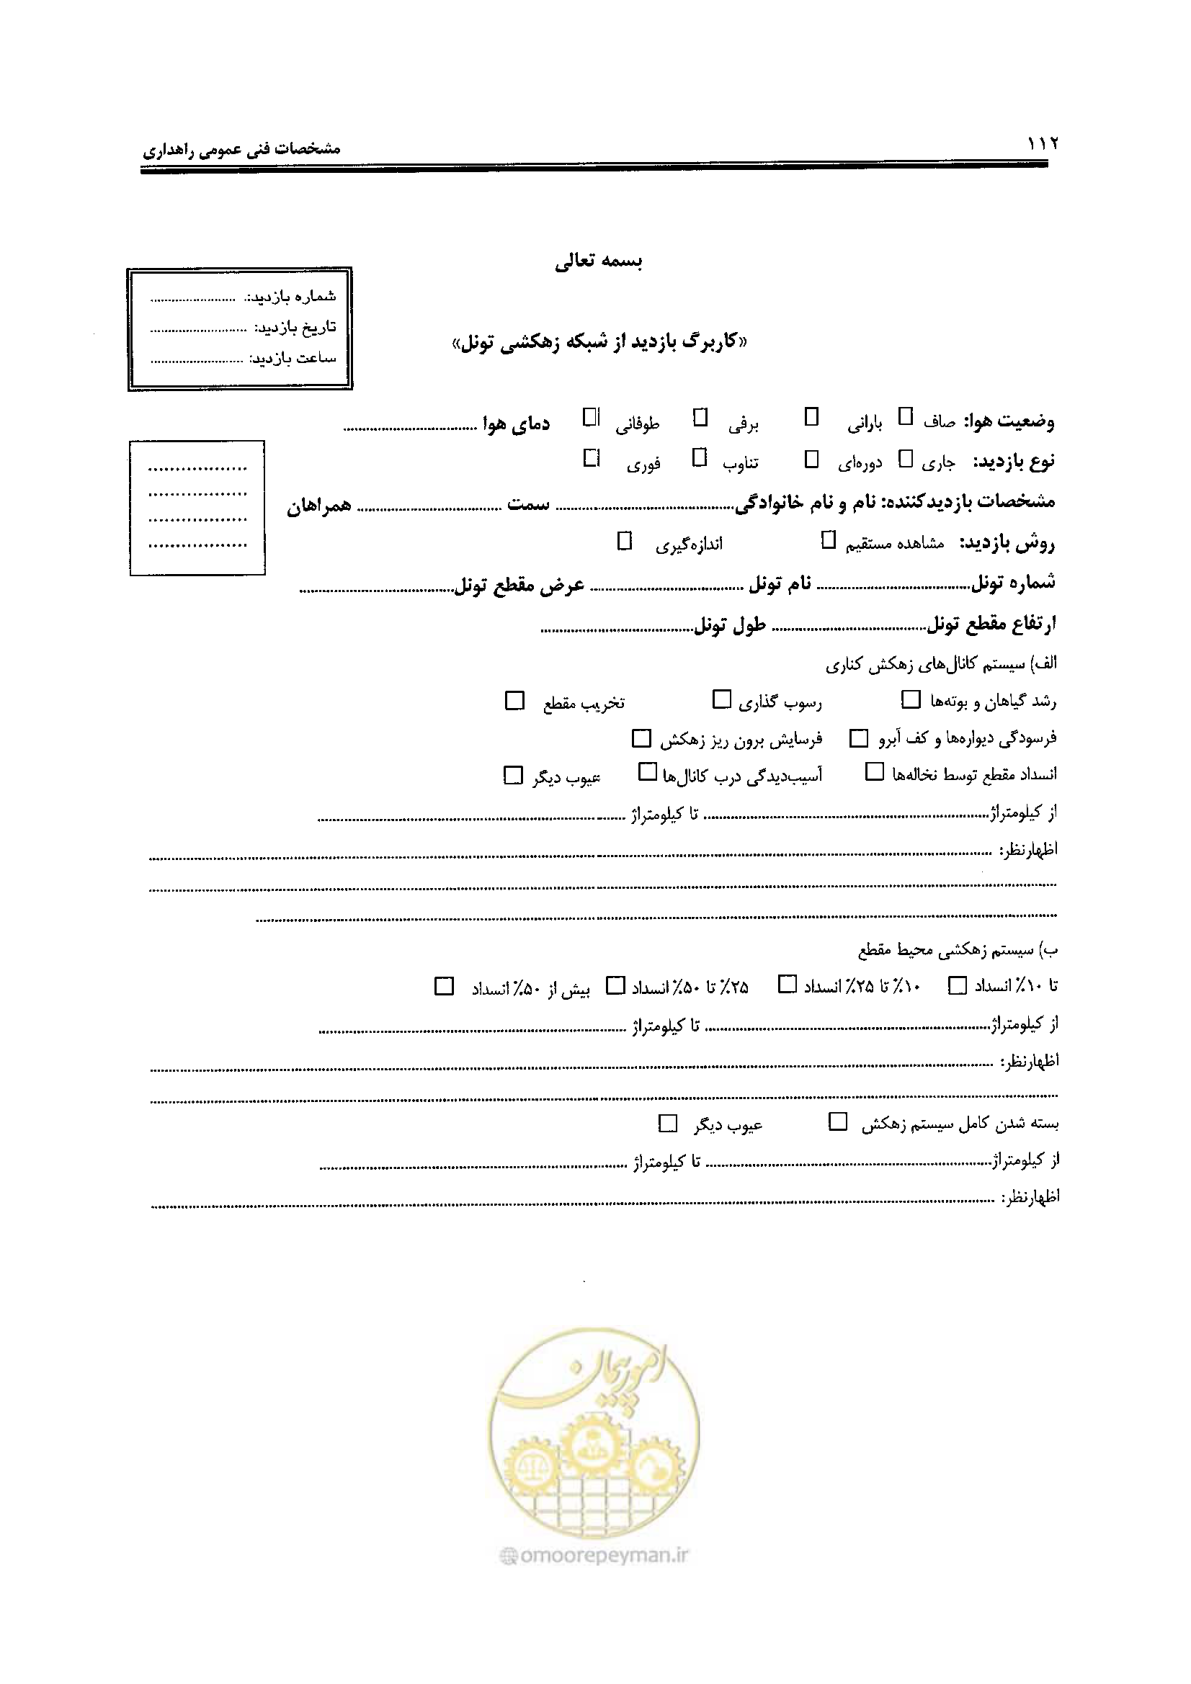 ۱۱۲
مشخصات فنی عمومی راهداری
بسمه تعالی
شماره بازدید: ........................
تاریخ بازدید: ........................
ساعت بازدید: ........................
«کاربرگ بازدید از شبکه زهکشی تونل»
وضعیت هوا: صاف □ بارانی □ برفی □ طوفانی □ دمای هوا ................................
نوع بازدید: جاری □ دوره‌ای □ تناوب □ فوری □
مشخصات بازدیدکننده: نام و نام خانوادگی................................ سمت ................................ همراهان
..................
..................
..................
..................
روش بازدید: مشاهده مستقیم □ اندازه‌گیری □
شماره تونل................................ نام تونل ................................ عرض مقطع تونل................................
ارتفاع مقطع تونل................................ طول تونل................................
الف) سیستم کانال‌های زهکش کناری
رشد گیاهان و بوته‌ها □ رسوب گذاری □ تخریب مقطع □
فرسودگی دیواره‌ها و کف آبرو □ فرسایش برون ریز زهکش □
انسداد مقطع توسط نخاله‌ها □ آسیب‌دیدگی درب کانال‌ها □ عیوب دیگر □
از کیلومتراژ................................ تا کیلومتراژ ................................
اظهارنظر: ................................
................................
................................
ب) سیستم زهکشی محیط مقطع
تا ۱۰٪ انسداد □ ۱۰٪ تا ۲۵٪ انسداد □ ۲۵٪ تا ۵۰٪ انسداد □ بیش از ۵۰٪ انسداد □
از کیلومتراژ................................ تا کیلومتراژ ................................
اظهارنظر: ................................
................................
بسته شدن کامل سیستم زهکش □ عیوب دیگر □
از کیلومتراژ................................ تا کیلومتراژ ................................
اظهارنظر: ................................
امور پیمان
omoorepeyman.ir